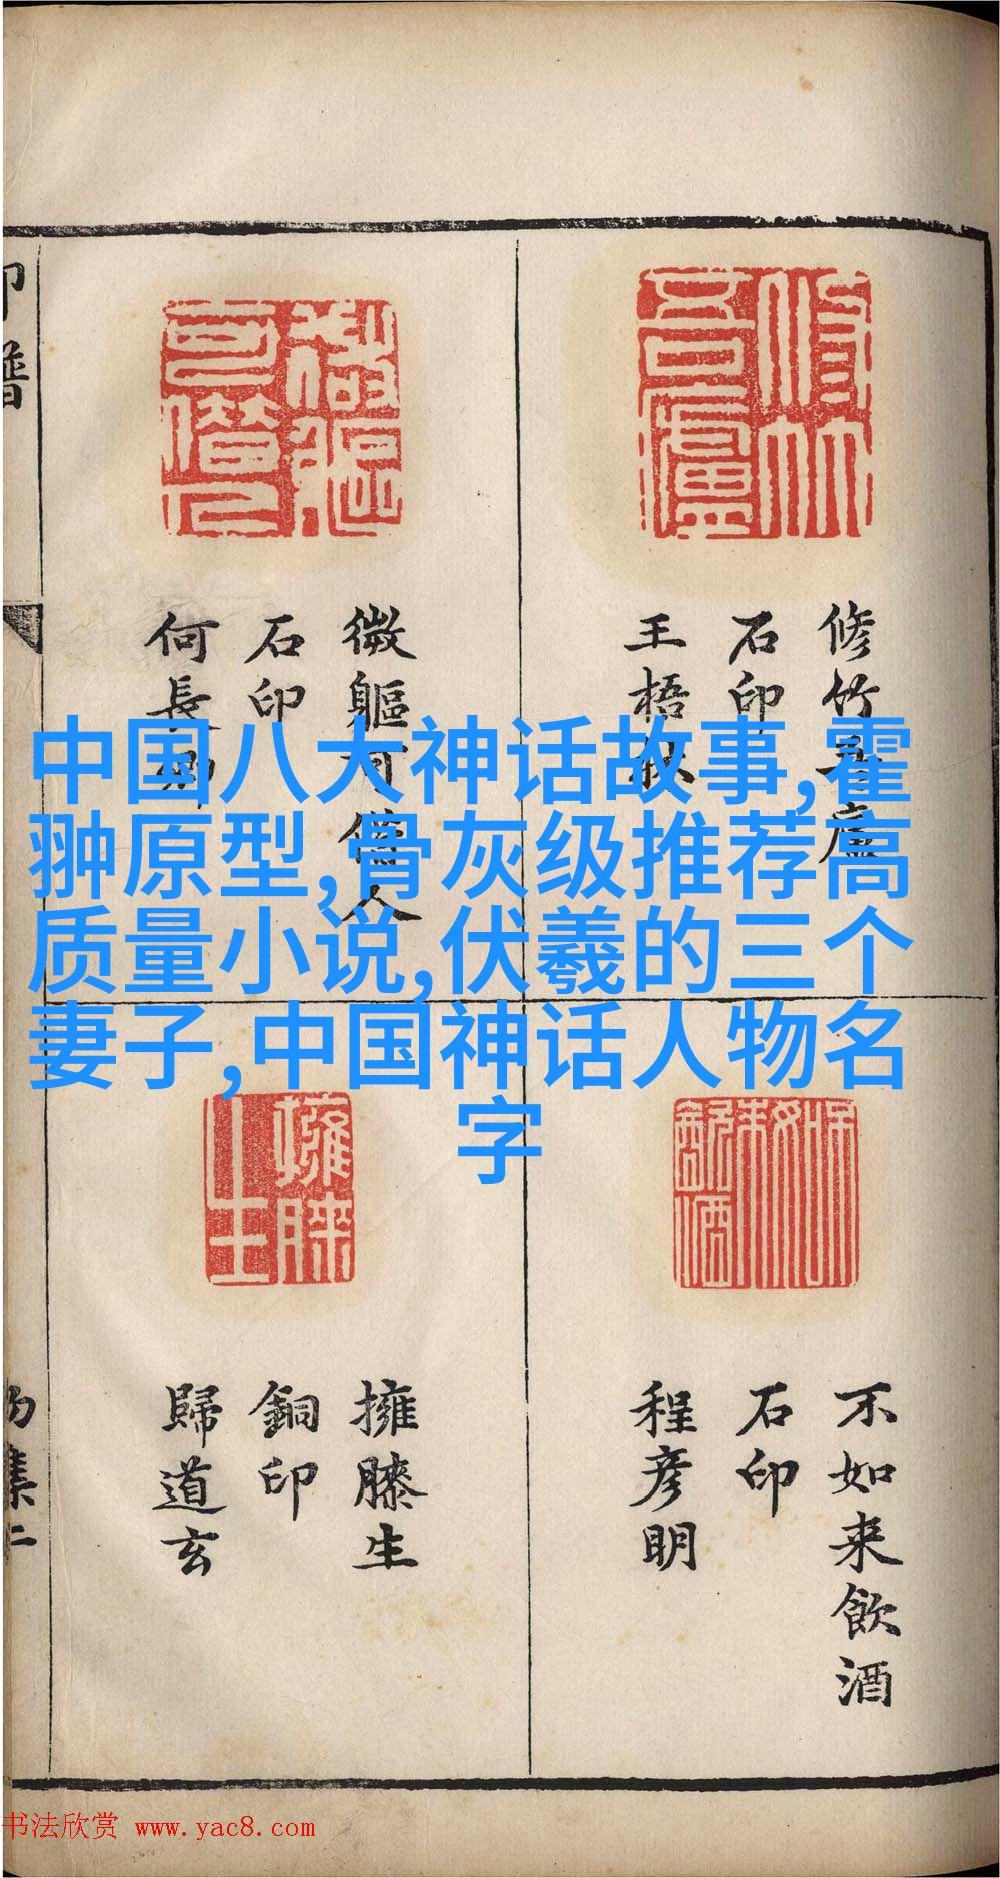 修竹吾廬
石印
王梧叔
微軀可借人
石印
何長卿
中国八大神话故事,霍
翀原型,骨灰级推荐高
质量小说,伏羲的三个
妻子,中国神话人物名
字
不如来飲酒
石印
程彦明
擁膝生
銅印
歸道玄
印譜
书法欣赏 www.yac8.com